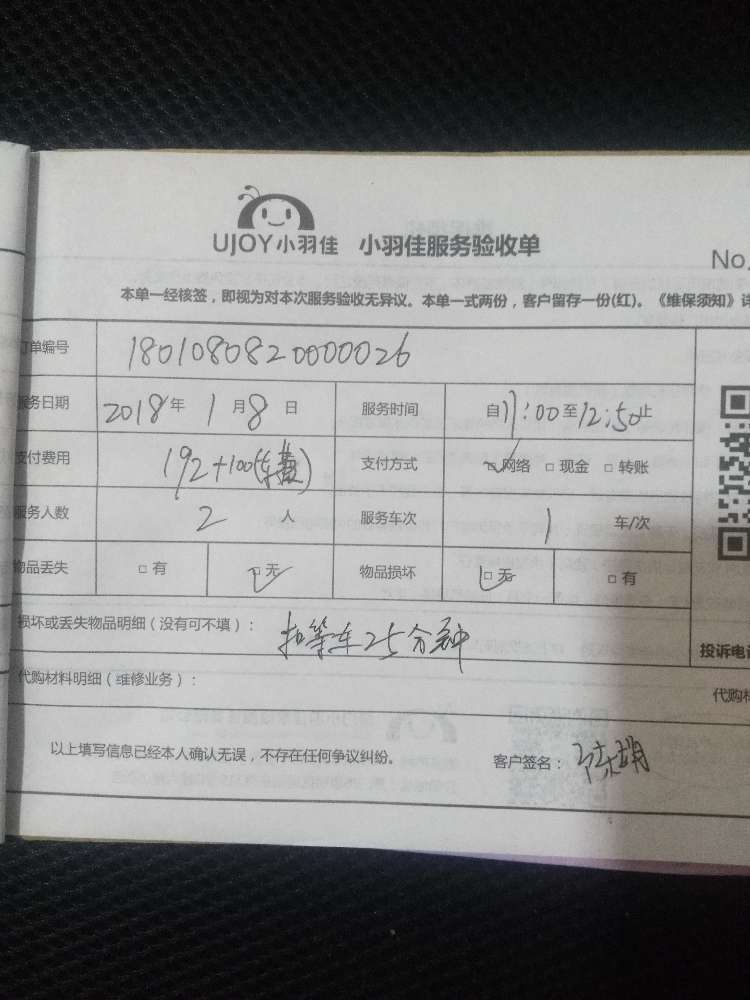 UJOY小羽佳 小羽佳服务验收单
No.
本单一经核签，即视为对本次服务验收无异议。本单一式两份，客户留存一份(红)。《维保须知》详
订单编号 1801080820000026
服务日期 2018年 1月8日 服务时间 自11:00至12:50止
支付费用 192+100(车费) 支付方式 网络 现金 转账
服务人数 2人 服务车次 1 车/次
物品丢失 有 无 物品损坏 无 有
损坏或丢失物品明细（没有可不填）： 扣等车25分钟
投诉电话
代购材料明细（维修业务）：
代购材
以上填写信息已经本人确认无误，不存在任何争议纠纷。 客户签名：